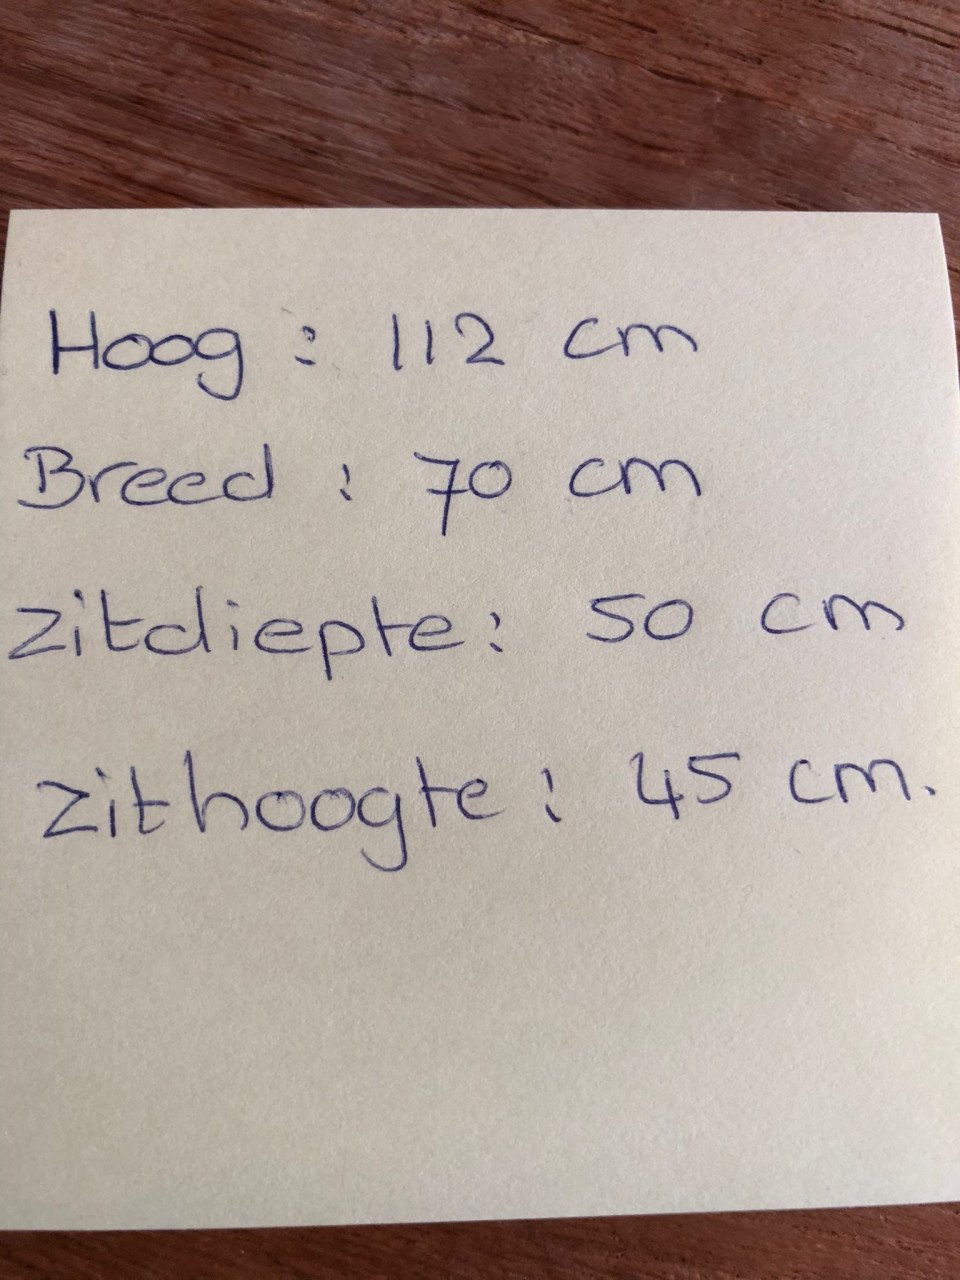 Hoog : 112 cm
Breed : 70 cm
Zitdiepte : 50 cm
Zithoogte : 45 cm.